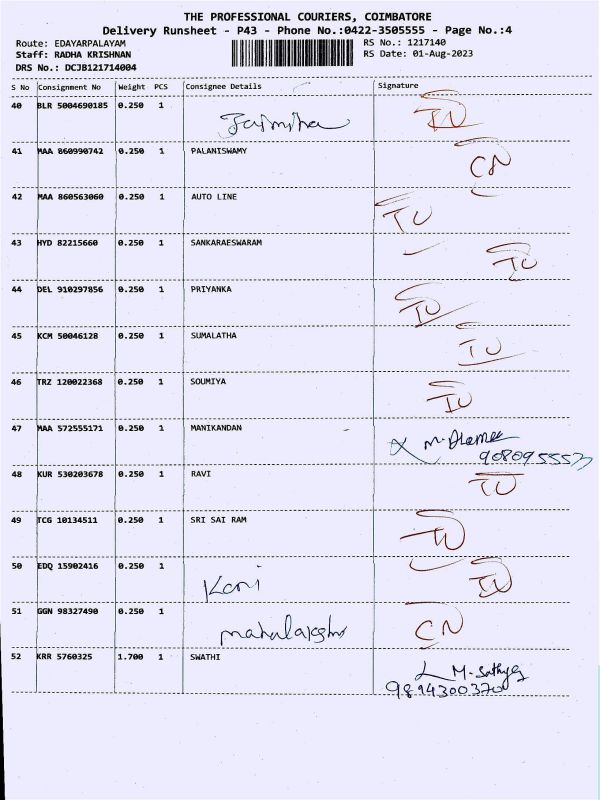 THE PROFESSIONAL COURIERS, COIMBATORE
Delivery Runsheet - P43 - Phone No.:0422-3505555 - Page No.:4
Route: EDAYARPALAYAM RS No.: 1217140
Staff: RADHA KRISHNAN RS Date: 01-Aug-2023
DRS No.: DCJB121714004
S No Consignment No Weight PCS Consignee Details Signature
40 BLR 5004690185 0.250 1
41 MAA 860990742 0.250 1 PALANISWAMY CN
42 MAA 860563060 0.250 1 AUTO LINE
43 HYD 82215660 0.250 1 SANKARAESWARAM
44 DEL 910297856 0.250 1 PRIYANKA
45 KCM 50046128 0.250 1 SUMALATHA
46 TRZ 120022368 0.250 1 SOUMIYA
47 MAA 572555171 0.250 1 MANIKANDAN
9080955553
48 KUR 530203678 0.250 1 RAVI
49 TCG 10134511 0.250 1 SRI SAI RAM
50 EDQ 15902416 0.250 1
Kani
51 GGN 98327490 0.250 1 CN
52 KRR 5760325 1.700 1 SWATHI
9894300370